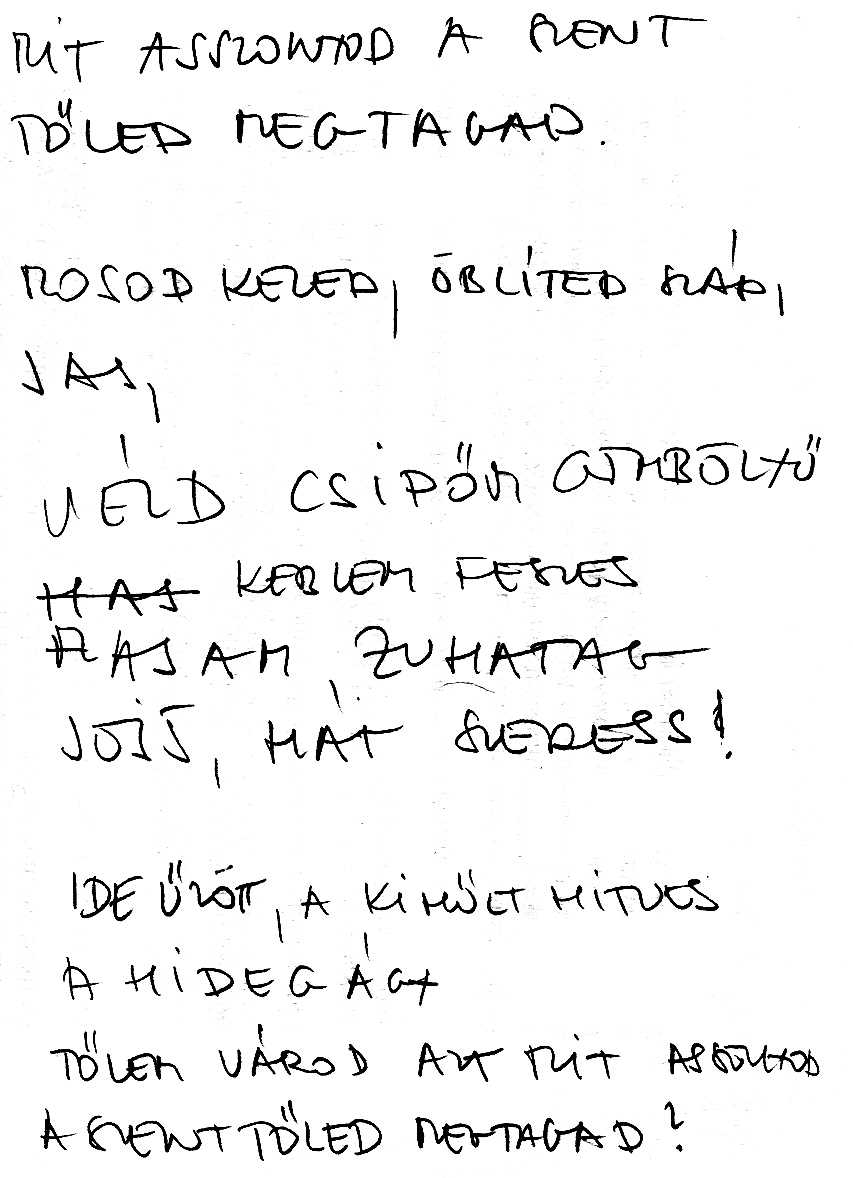 MIT ASSZONYOD A SZENT
TŐLED MEGTAGAD.
MOSOD KEZED, ÖBLÍTED SZÁD,
JAJ,
VÉLD CSIPŐM GÖMBÖLYŰ
KEBLEM FESZES
HAJAM ZUHATAG
JÖJJ, HÁT SZERESS!
IDE ŰZÖTT, A KIHŰLT HITVES
A HIDEG ÁGY
TŐLEM VÁROD AZT MIT ASSZONYOD
A SZENT TŐLED MEGTAGAD?